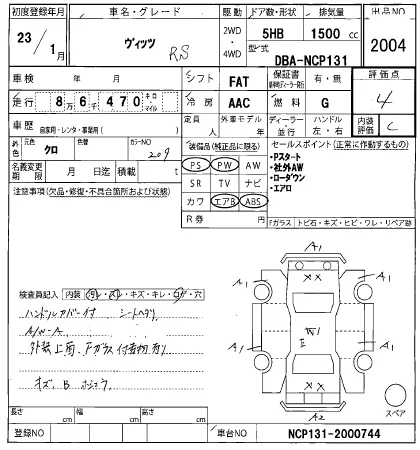 初度登録年月 車名・グレード 駆動 ドア数・形状 排気量 出品NO
23/1月 ヴィッツ RS 2WD・4WD 5HB 1500cc 2004
型式 DBA-NCP131
車検 年 月 シフト FAT 保証書 有・無 評価点
走行 8万6千470 キロ・マイル 冷房 AAC 燃料 G 4
車歴 定員 人 外車モデル 年 ディーラー・並行 ハンドル 左・右 内装評価 C
自家用・レンタ・事業用( )
外色 元色 クロ 色替 カラーNO 209
装備品(純正品に限る) セールスポイント(正常に作動するもの)
名義変更期限 月 日迄 積載 t
PS PW AW ・Pスタート
SR TV ナビ ・社外AW
カワ エアB ABS ・ローダウン
・エアロ
R券 ¥
注意事項(欠品・修復・不具合箇所および状態)
Fガラス トビ石・キズ・ヒビ・ワレ・リペア跡
A1
A1 A1
A1 A1
W1
E
A2
スペア
検査員記入 内装
ハンドルカバー付 シートヘタリ
A/W-A
外装上面、ドアガラス付着物有り
キズ、B
長さ cm 幅 cm 高さ cm
登録NO 車台NO NCP131-2000744